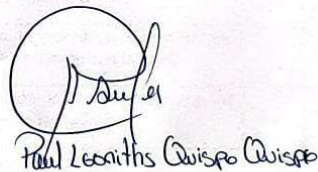 Paul Leoniths Quispe Quispe